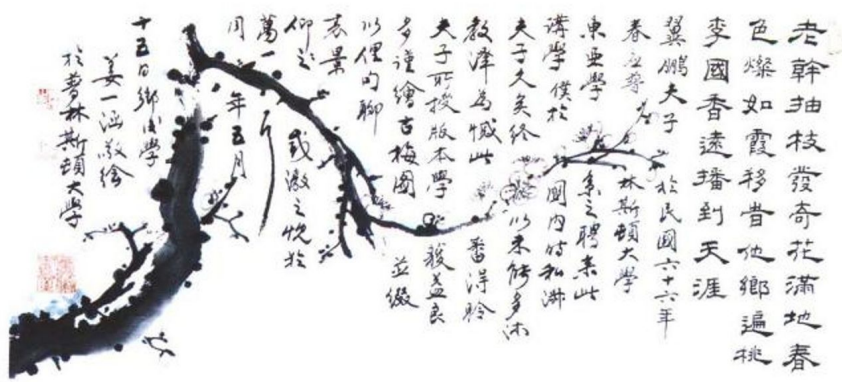 老幹抽枝發奇花滿地春
色燦如霞移他鄉遍桃
李國香遠播到天涯
翼鵬夫子 於民國六十六年
春應普 林斯頓大學
東亞學 系之聘來此
講學僕於 國內時私淑
夫子久矣終 以未能多沐
教澤為憾此 番得聆
夫子所授版本學 獲益良
多謹繪古梅圖 並綴
以俚句聊
表景
仰與 感激之忱於
萬一
同 年五月
十五日鄉後學
姜一涵敬繪
於普林斯頓大學